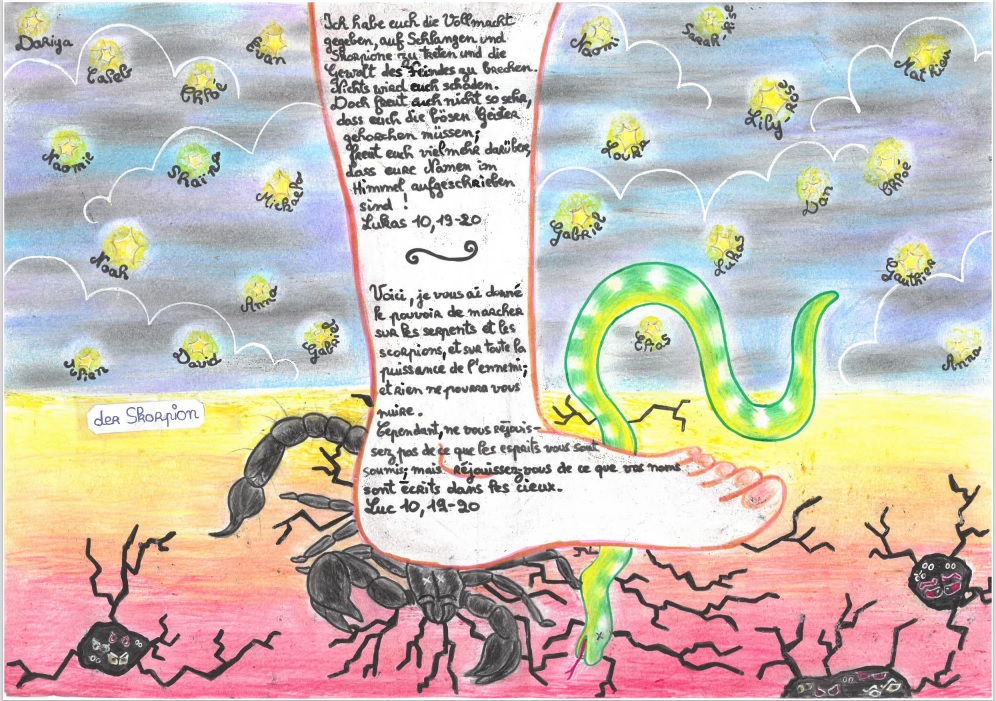 Dariya
Caleb
Chloé
Evan
Naomie
Shaina
Mickaela
Noah
Anna
David
Gabriel
Ich habe euch die Vollmacht
gegeben, auf Schlangen und
Skorpione zu treten und die
Gewalt des Feindes zu brechen.
Nichts wird euch schaden.
Doch freut euch nicht so sehr,
dass euch die bösen Geister
gehorchen müssen;
freut euch vielmehr darüber,
dass eure Namen im
Himmel aufgeschrieben
sind !
Lukas 10,19-20
Voici, je vous ai donné
le pouvoir de marcher
sur les serpents et les
scorpions, et sur toute la
puissance de l'ennemi;
et rien ne pourra vous
nuire.
Cependant, ne vous réjouis-
sez pas de ce que les esprits vous sont
soumis; mais réjouissez-vous de ce que vos noms
sont écrits dans les cieux.
Luc 10, 19-20
Naomi
Sarah-Lise
Mathieu
Lily-Rose
Louka
Chloé
Dan
Gabriel
Lukas
Gauthier
Elias
Anna
der Skorpion